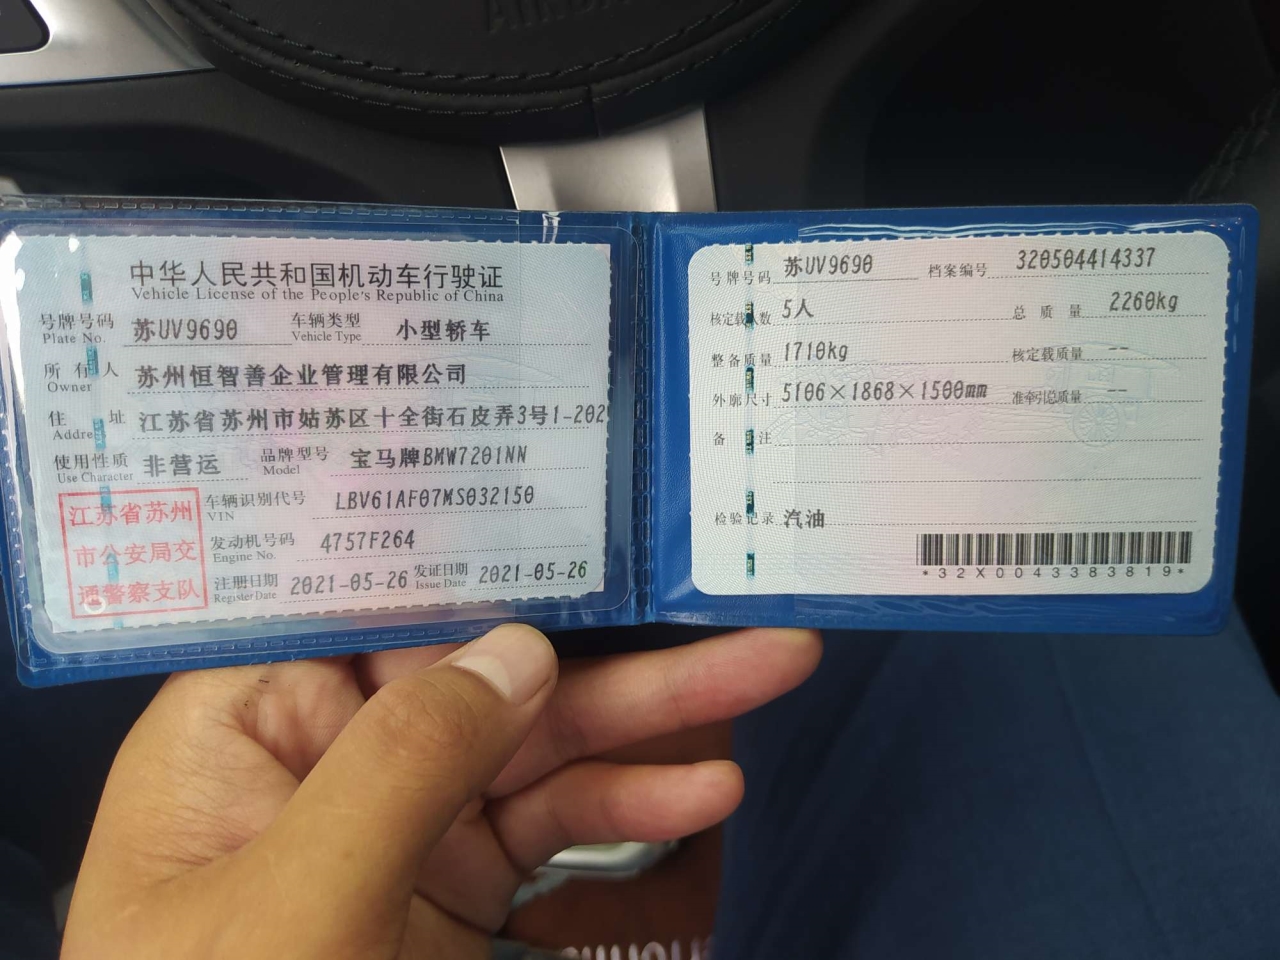 中华人民共和国机动车行驶证
Vehicle License of the People's Republic of China
号牌号码 苏UV9690 车辆类型 小型轿车
Plate No. Vehicle Type
所有人 苏州恒智善企业管理有限公司
Owner
住址 江苏省苏州市姑苏区十全街石皮弄3号1-202
Address
使用性质 非营运 品牌型号 宝马牌BMW7201NN
Use Character Model
江苏省苏州
市公安局交
通警察支队
车辆识别代号 LBV61AF07MS032150
VIN
发动机号码 4757F264
Engine No.
注册日期 2021-05-26 发证日期 2021-05-26
Register Date Issue Date
号牌号码 苏UV9690 档案编号 320504414337
核定载人数 5人 总质量 2260kg
整备质量 1710kg 核定载质量 --
外廓尺寸 5106×1868×1500mm 准牵引总质量 --
备注
检验记录 汽油
*32X0043383819*